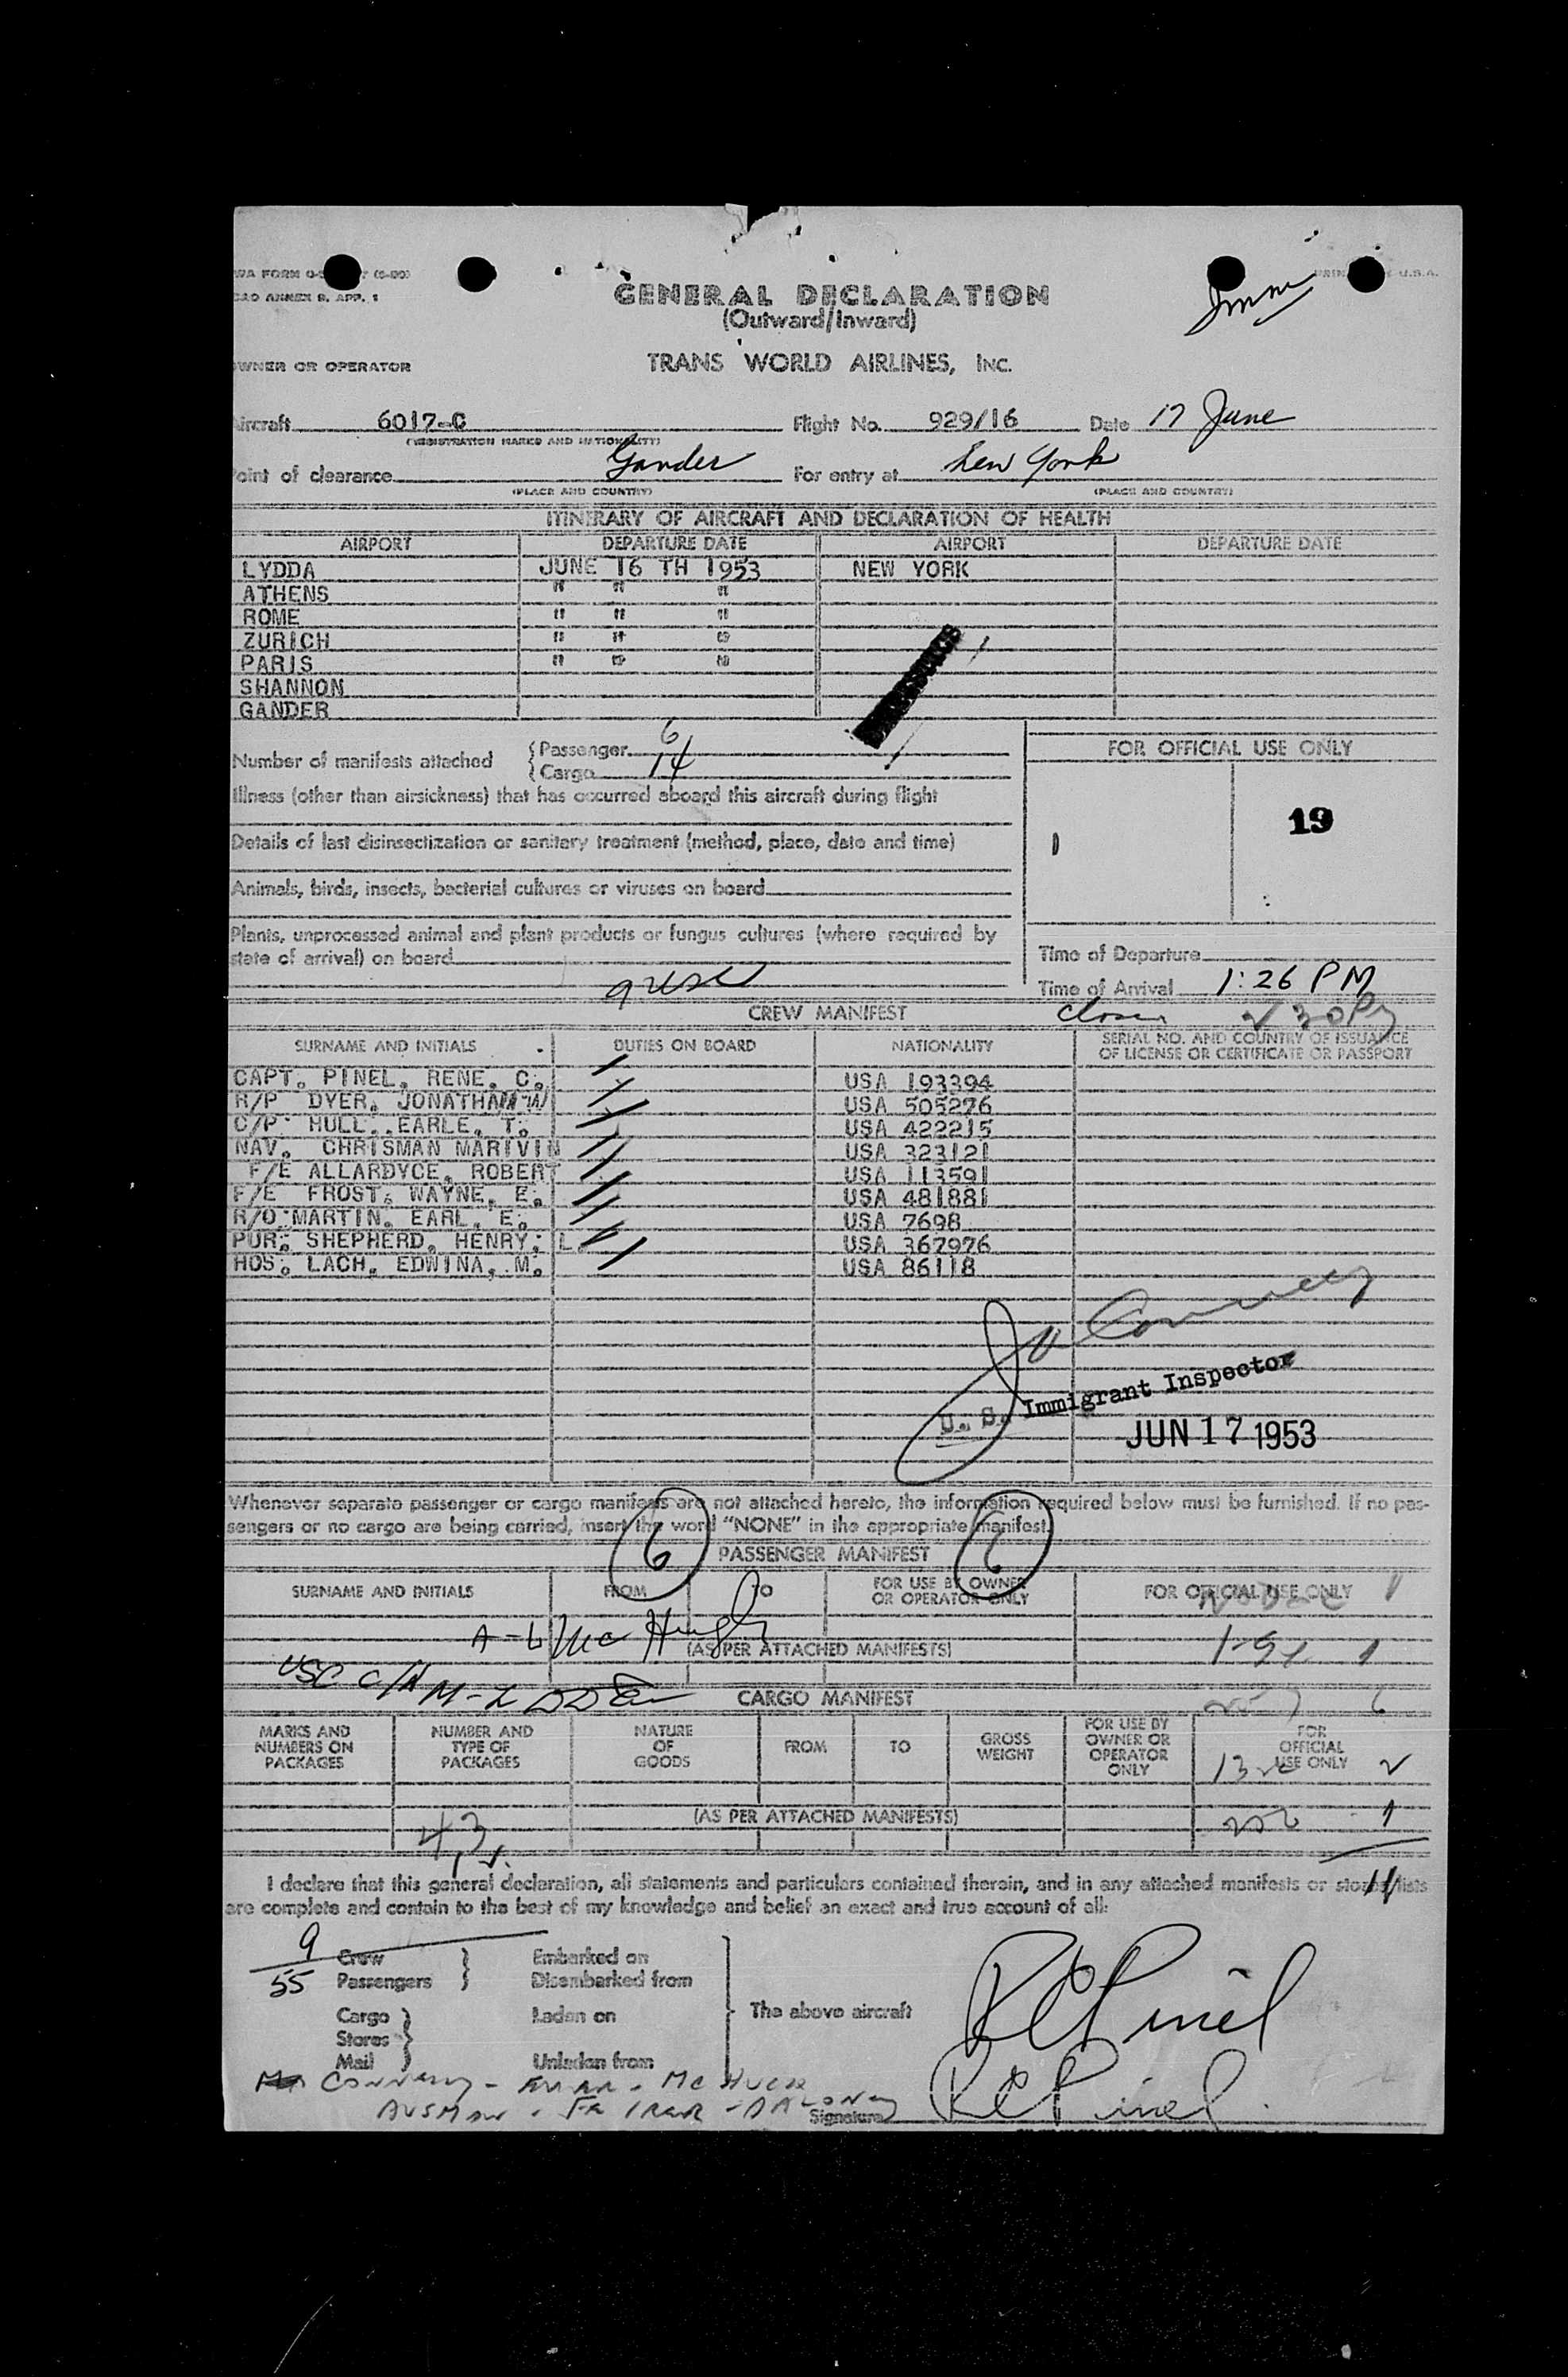 GENERAL DECLARATION
(Outward/Inward)
OWNER OR OPERATOR TRANS WORLD AIRLINES, INC.
Aircraft 6017-C Flight No. 929/16 Date 17 June
(REGISTRATION MARKS AND NATIONALITY)
Point of clearance Gander For entry at New York
(PLACE AND COUNTRY) (PLACE AND COUNTRY)
ITINERARY OF AIRCRAFT AND DECLARATION OF HEALTH
AIRPORT DEPARTURE DATE AIRPORT DEPARTURE DATE
LYDDA JUNE 16 TH 1953 NEW YORK
ATHENS " " "
ROME " " "
ZURICH " " "
PARIS " " "
SHANNON
GANDER
Number of manifests attached { Passenger 6
{ Cargo 14
FOR OFFICIAL USE ONLY
19
Illness (other than airsickness) that has occurred aboard this aircraft during flight
Details of last disinsectization or sanitary treatment (method, place, date and time)
Animals, birds, insects, bacterial cultures or viruses on board
Plants, unprocessed animal and plant products or fungus cultures (where required by
state of arrival) on board
Time of Departure
Time of Arrival 1:26 PM
CREW MANIFEST
SURNAME AND INITIALS DUTIES ON BOARD NATIONALITY SERIAL NO. AND COUNTRY OF ISSUANCE
OF LICENSE OR CERTIFICATE OR PASSPORT
CAPT. PINEL, RENE, C. USA 193394
R/P DYER, JONATHAN W USA 505276
C/P HULL, EARLE, T. USA 422215
NAV. CHRISMAN MARIVIN USA 323121
F/E ALLARDYCE, ROBERT USA 113591
F/E FROST, WAYNE, E. USA 481881
R/O MARTIN, EARL, E. USA 7698
PUR. SHEPHERD, HENRY, L. USA 367976
HOS. LACH, EDWINA, M. USA 86118
U. S. Immigrant Inspector
JUN 17 1953
Whenever separate passenger or cargo manifests are not attached hereto, the information required below must be furnished. If no pas-
sengers or no cargo are being carried, insert the word "NONE" in the appropriate manifest.
6 6
PASSENGER MANIFEST
SURNAME AND INITIALS FROM TO FOR USE BY OWNER
OR OPERATOR ONLY FOR OFFICIAL USE ONLY
A-L McHugh
(AS PER ATTACHED MANIFESTS)
USC C/A M-Z
CARGO MANIFEST
MARKS AND
NUMBERS ON
PACKAGES NUMBER AND
TYPE OF
PACKAGES NATURE
OF
GOODS FROM TO GROSS
WEIGHT FOR USE BY
OWNER OR
OPERATOR
ONLY FOR
OFFICIAL
USE ONLY
(AS PER ATTACHED MANIFESTS)
I declare that this general declaration, all statements and particulars contained therein, and in any attached manifests or stores lists
are complete and contain to the best of my knowledge and belief an exact and true account of all:
9 Crew } Embarked on
55 Passengers } Disembarked from
Cargo } Laden on
Stores }
Mail } Unladen from
The above aircraft
R C Pinel
Signature R C Pinel